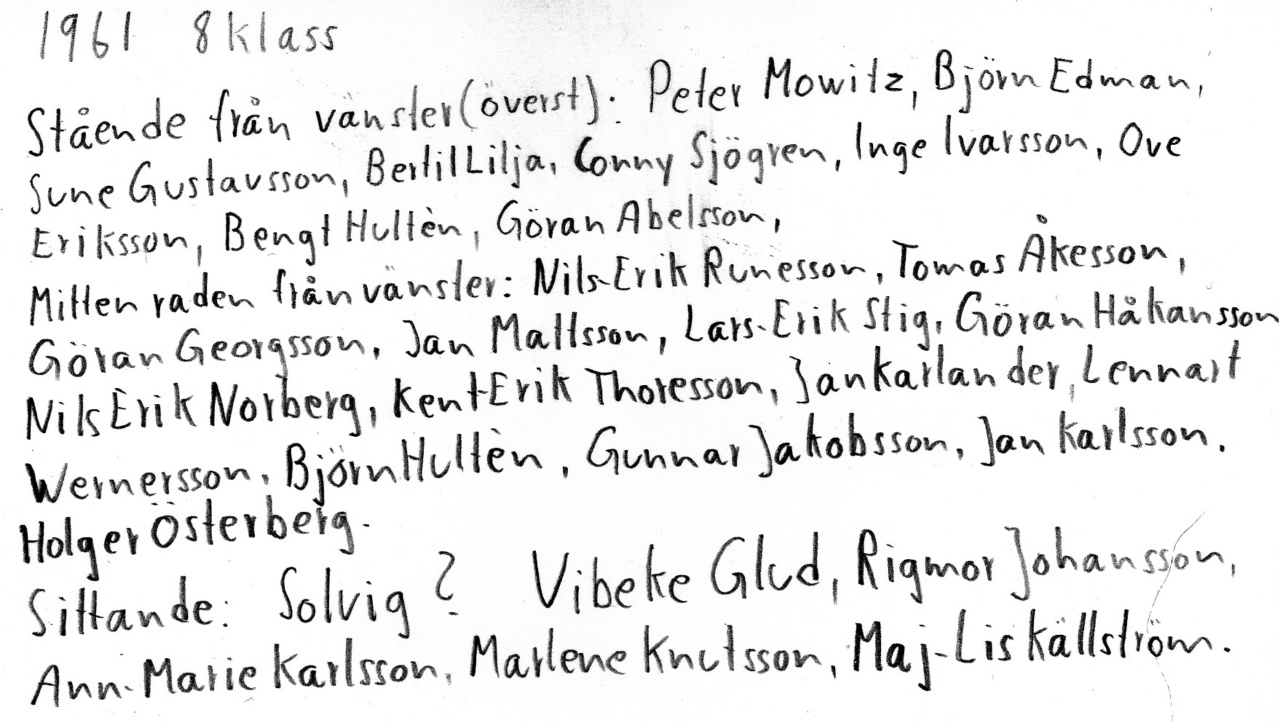 1961 8 klass
Stående från vänster (överst): Peter Mowitz, Björn Edman,
Sune Gustavsson, Bertil Lilja, Conny Sjögren, Inge Ivarsson, Ove
Eriksson, Bengt Hultèn, Göran Abelsson,
Mitten raden från vänster: Nils-Erik Runesson, Tomas Åkesson,
Göran Georgsson, Jan Mattsson, Lars-Erik Stig, Göran Håkansson
Nils Erik Norberg, Kent-Erik Thoresson, Jan Karlander, Lennart
Wernersson, Björn Hultèn, Gunnar Jakobsson, Jan Karlsson.
Holger Österberg.
Sittande: Solvig ? Vibeke Glud, Rigmor Johansson,
Ann-Marie Karlsson, Marlene Knutsson, Maj-Lis Källström.